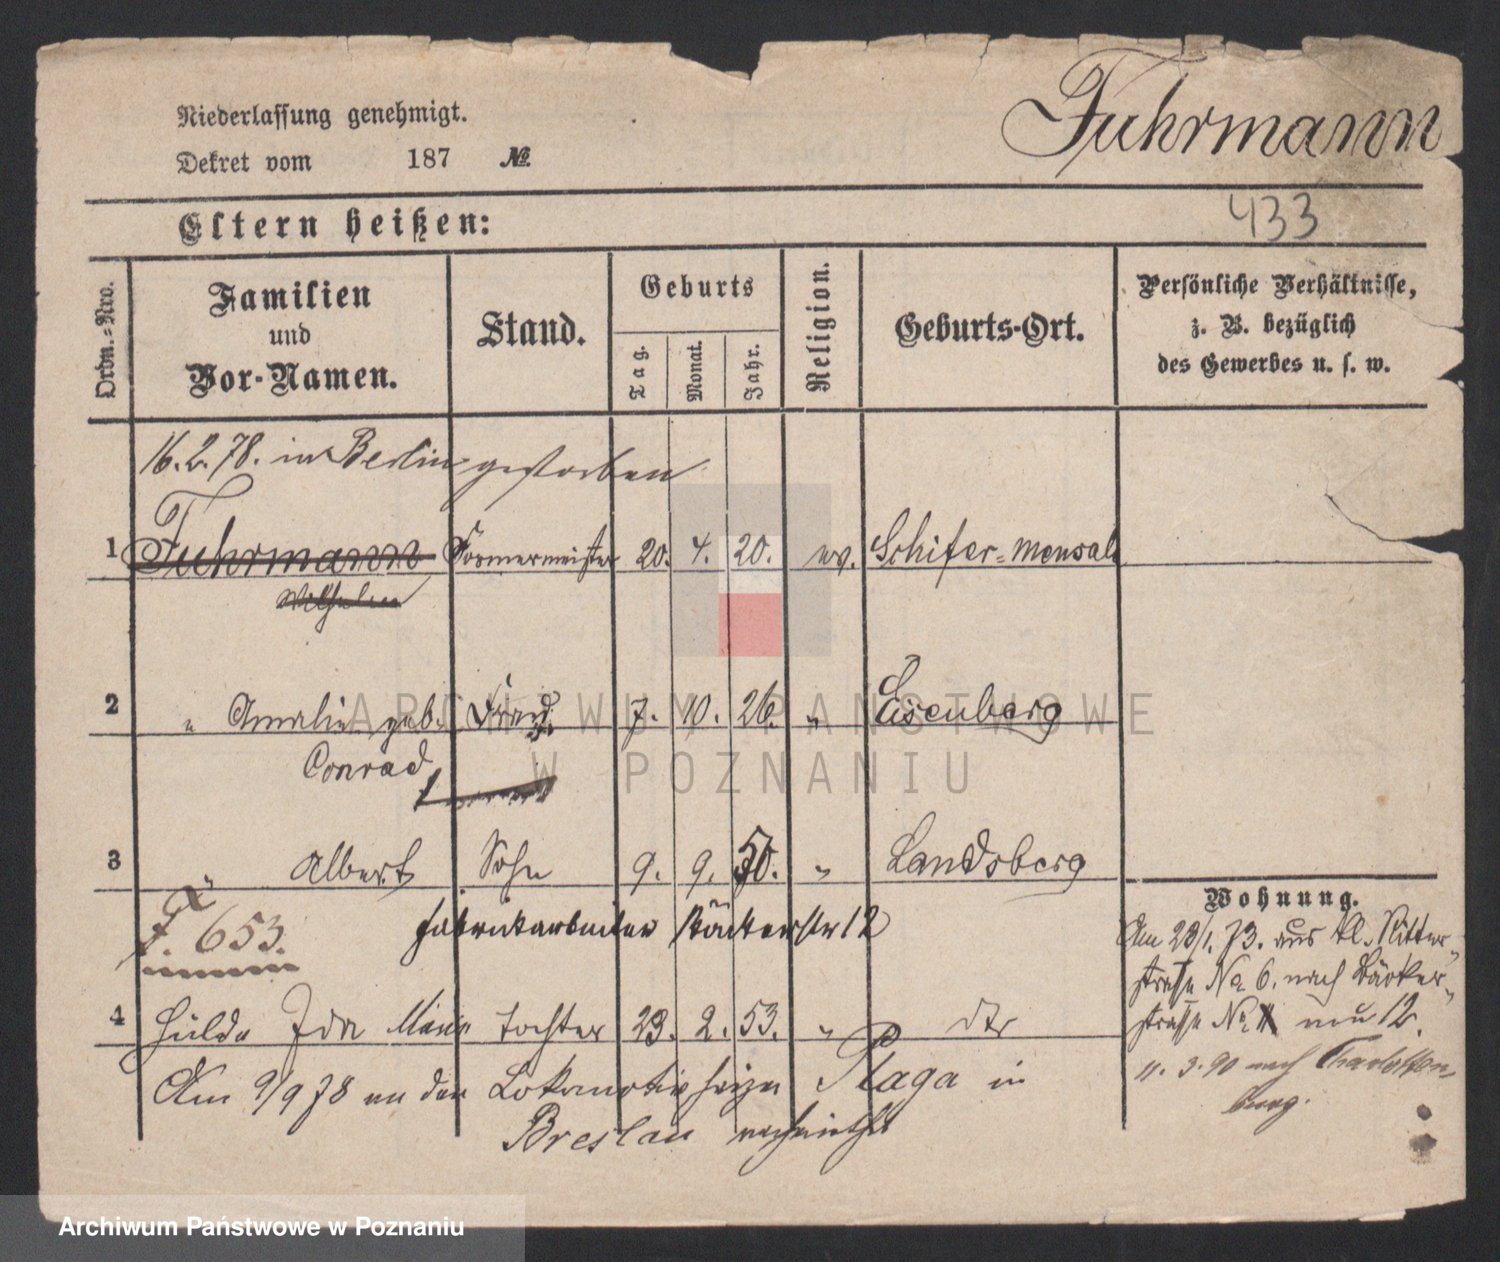 Niederlassung genehmigt.
Dekret vom 187 №
Fuhrmann
433
Eltern heißen:
Ordn.-Nro.
Familien
und
Vor-Namen.
Stand.
Geburts
Tag.
Monat.
Jahr.
Religion.
Geburts-Ort.
Persönliche Verhältnisse,
z. B. bezüglich
des Gewerbes u. s. w.
16.2.78. in Berlin gestorben
1 Fuhrmann Formermeister 20. 4. 20. ev. Schifer=Mensal
Wilhelm
2 " Amalie geb. Frau 7. 10. 26. " Eisenberg
Conrad
3 Albert Sohn 9. 9. 50. " Landsberg
F. 653.
Fabrikarbeiter Bäckerstr 12
4 Hulda Ida Tochter 23. 2. 53. " dto
Am 9/9 78 an den Lokomotivheizer Plaga in
Breslau verheirathet
Wohnung.
Am 28/1. 73. aus kl. Ritter-
straße No 6. nach Bäcker-
straße No 12.
11. 3. 90 nach Charlotten-
burg.
ARCHIWUM PAŃSTWOWE
W POZNANIU
Archiwum Państwowe w Poznaniu